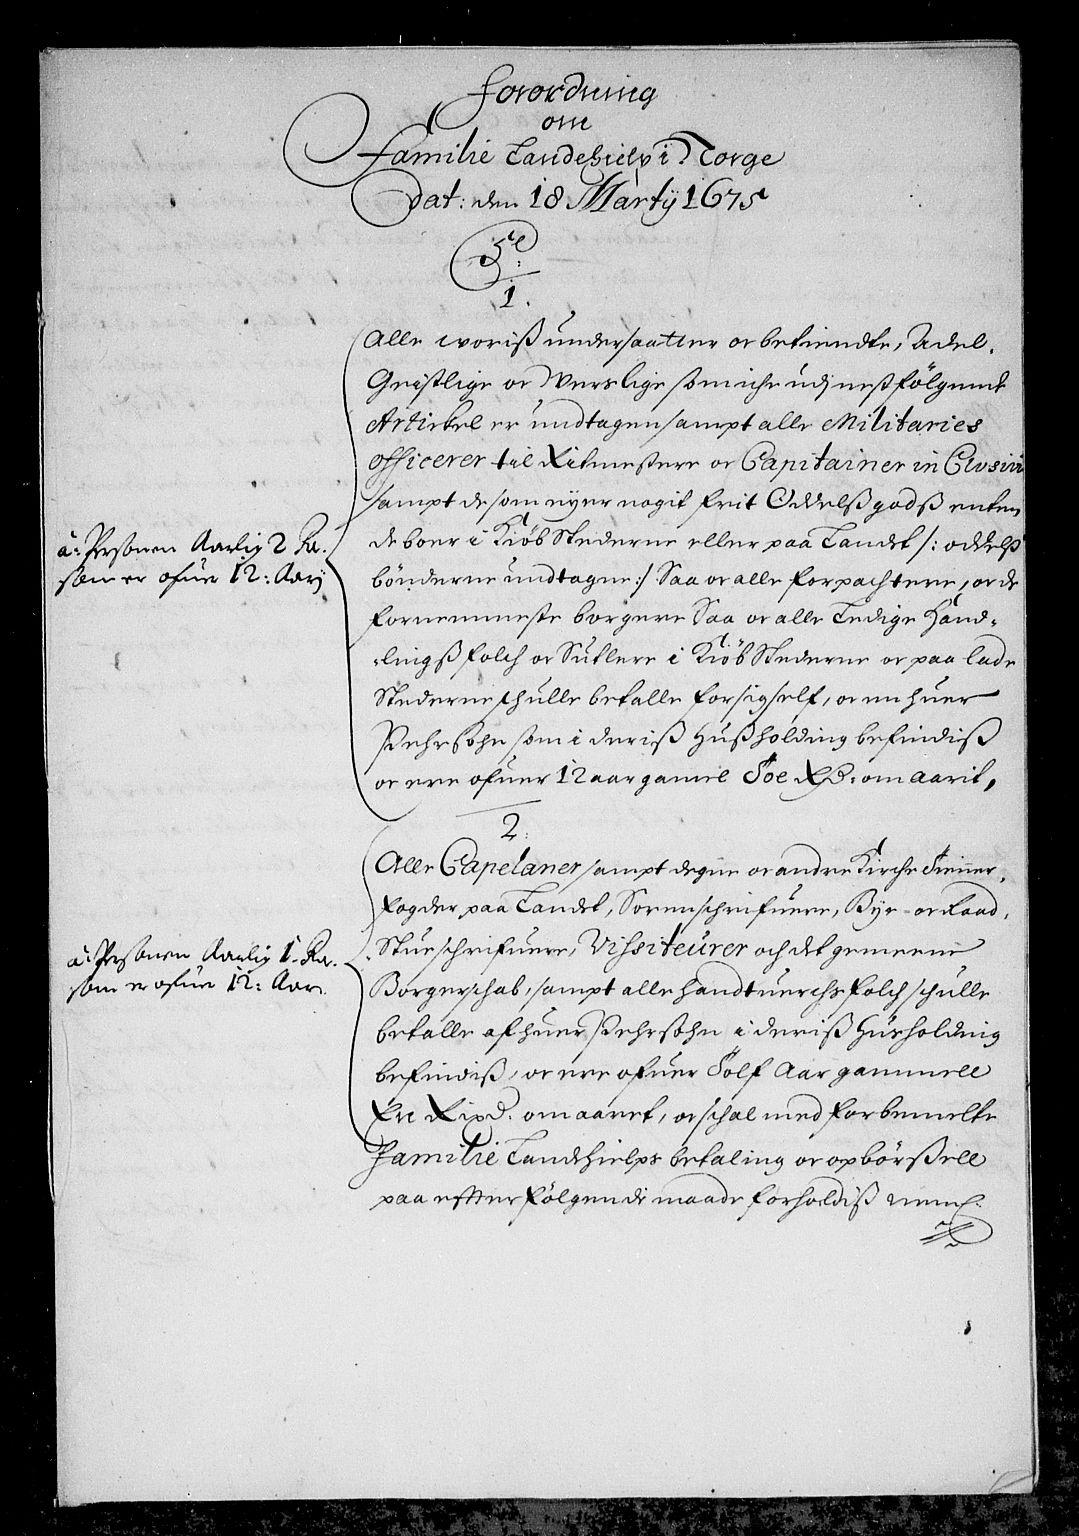 Forordning
om
Familie Landehielp i Norge
dat: den 18 Martij 1675
1.
Alle woriß undersaatter oc betiendte, Adel.
Geistlige oc Werslige som iche udj nest følgende
Artickel er undtagen sampt alle Militaries
officerer til Ritmestere oc Capitainer inclusivè
sampt de som eyer nogit frit Oddelß godß enten
de boer i Kiøb Stederne eller paa Landet /: oddelß
bønderne undtagne :/ Saa oc alle forpachtere, oc de
fornemmeste borgere Saa oc alle Ledige Hand-
-lingß folch oc Sutlere i Kiøb Stederne oc paa lade
Stederne schulle betalle for sig self, oc en huer
Pehrsohn som i deriß Hußholding befindiß
oc ere ofuer 12 aar gamel Toe RD: om aarit,
à: Personen Aarlig 2 Rd.
som er ofuer 12: Aar
2.
Alle Capelaner sampt degne oc andre Kirche Tienner,
Fogder paa Landet, Sorenschrifuere, Bye- oc Raad,
-Stueschrifuere, Vissiteurer och det gemeene
Borgerschab, sampt alle handtuerchs folch schulle
betalle af huer Pehrsohn i deriß Husholding
befindiß, oc ere ofuer Tolf Aar gammell
En RixD. om aaret, oc schal med forbemelte
Familie Landhielps betaling oc opbørßell
paa effterfølgende maade forholdiß neml:
à: Personen Aarlig 1. Rd.
som er ofuer 12: Aar